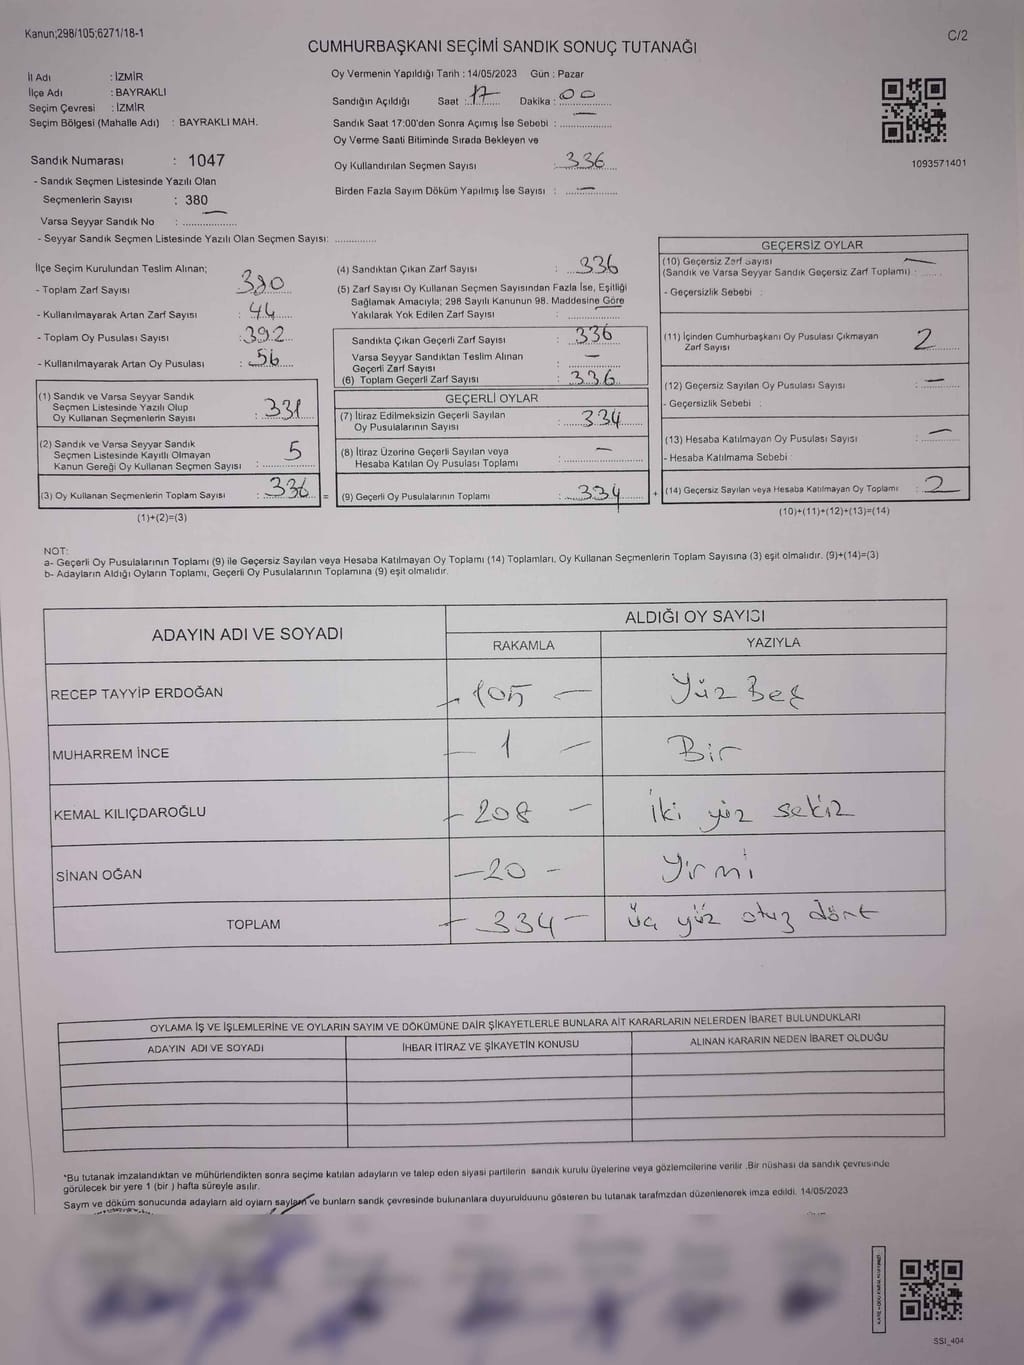 Kanun;298/105;6271/18-1
C/2
CUMHURBAŞKANI SEÇİMİ SANDIK SONUÇ TUTANAĞI
İl Adı : İZMİR
İlçe Adı : BAYRAKLI
Seçim Çevresi : İZMİR
Seçim Bölgesi (Mahalle Adı) : BAYRAKLI MAH.
Sandık Numarası : 1047
- Sandık Seçmen Listesinde Yazılı Olan
Seçmenlerin Sayısı : 380
Varsa Seyyar Sandık No : —
- Seyyar Sandık Seçmen Listesinde Yazılı Olan Seçmen Sayısı: ..............
Oy Vermenin Yapıldığı Tarih : 14/05/2023 Gün : Pazar
Sandığın Açıldığı Saat : 17 Dakika : 00
Sandık Saat 17:00'den Sonra Açımış İse Sebebi : —
Oy Verme Saati Bitiminde Sırada Bekleyen ve
Oy Kullandırılan Seçmen Sayısı : 336
Birden Fazla Sayım Döküm Yapılmış İse Sayısı : —
1093571401
İlçe Seçim Kurulundan Teslim Alınan;
- Toplam Zarf Sayısı : 380
- Kullanılmayarak Artan Zarf Sayısı : 44
- Toplam Oy Pusulası Sayısı : 392
- Kullanılmayarak Artan Oy Pusulası : 56
(1) Sandık ve Varsa Seyyar Sandık
Seçmen Listesinde Yazılı Olup
Oy Kullanan Seçmenlerin Sayısı : 331
(2) Sandık ve Varsa Seyyar Sandık
Seçmen Listesinde Kayıtlı Olmayan
Kanun Gereği Oy Kullanan Seçmen Sayısı : 5
(3) Oy Kullanan Seçmenlerin Toplam Sayısı : 336 =
(1)+(2)=(3)
(4) Sandıktan Çıkan Zarf Sayısı : 336
(5) Zarf Sayısı Oy Kullanan Seçmen Sayısından Fazla İse, Eşitliği
Sağlamak Amacıyla; 298 Sayılı Kanunun 98. Maddesine Göre
Yakılarak Yok Edilen Zarf Sayısı : —
Sandıkta Çıkan Geçerli Zarf Sayısı : 336
Varsa Seyyar Sandıktan Teslim Alınan
Geçerli Zarf Sayısı : —
(6) Toplam Geçerli Zarf Sayısı : 336
GEÇERLİ OYLAR
(7) İtiraz Edilmeksizin Geçerli Sayılan
Oy Pusulalarının Sayısı : 334
(8) İtiraz Üzerine Geçerli Sayılan veya
Hesaba Katılan Oy Pusulası Toplamı : —
(9) Geçerli Oy Pusulalarının Toplamı : 334 +
GEÇERSİZ OYLAR
(10) Geçersiz Zarf Sayısı —
(Sandık ve Varsa Seyyar Sandık Geçersiz Zarf Toplamı) : ......
- Geçersizlik Sebebi :
(11) İçinden Cumhurbaşkanı Oy Pusulası Çıkmayan
Zarf Sayısı : 2
(12) Geçersiz Sayılan Oy Pusulası Sayısı : —
- Geçersizlik Sebebi :
(13) Hesaba Katılmayan Oy Pusulası Sayısı : —
- Hesaba Katılmama Sebebi :
(14) Geçersiz Sayılan veya Hesaba Katılmayan Oy Toplamı : 2
(10)+(11)+(12)+(13)=(14)
NOT:
a- Geçerli Oy Pusulalarının Toplamı (9) ile Geçersiz Sayılan veya Hesaba Katılmayan Oy Toplamı (14) Toplamları, Oy Kullanan Seçmenlerin Toplam Sayısına (3) eşit olmalıdır. (9)+(14)=(3)
b- Adayların Aldığı Oyların Toplamı, Geçerli Oy Pusulalarının Toplamına (9) eşit olmalıdır.
ADAYIN ADI VE SOYADI ALDIĞI OY SAYISI
RAKAMLA YAZIYLA
RECEP TAYYİP ERDOĞAN - 105 - Yüz Beş
MUHARREM İNCE - 1 - Bir
KEMAL KILIÇDAROĞLU - 208 - İki yüz sekiz
SİNAN OĞAN - 20 - Yirmi
TOPLAM - 334 - üç yüz otuz dört
OYLAMA İŞ VE İŞLEMLERİNE VE OYLARIN SAYIM VE DÖKÜMÜNE DAİR ŞİKAYETLERLE BUNLARA AİT KARARLARIN NELERDEN İBARET BULUNDUKLARI
ADAYIN ADI VE SOYADI İHBAR İTİRAZ VE ŞİKAYETİN KONUSU ALINAN KARARIN NEDEN İBARET OLDUĞU
*Bu tutanak imzalandıktan ve mühürlendikten sonra seçime katılan adayların ve talep eden siyasi partilerin sandık kurulu üyelerine veya gözlemcilerine verilir .Bir nüshası da sandık çevresinde
görülecek bir yere 1 (bir ) hafta süreyle asılır.
Saym ve döküm sonucunda adaylarn ald oylarn saylarn ve bunlarn sandk çevresinde bulunanlara duyurulduunu gösteren bu tutanak tarafmzdan düzenlenerek imza edildi. 14/05/2023
SSI_404